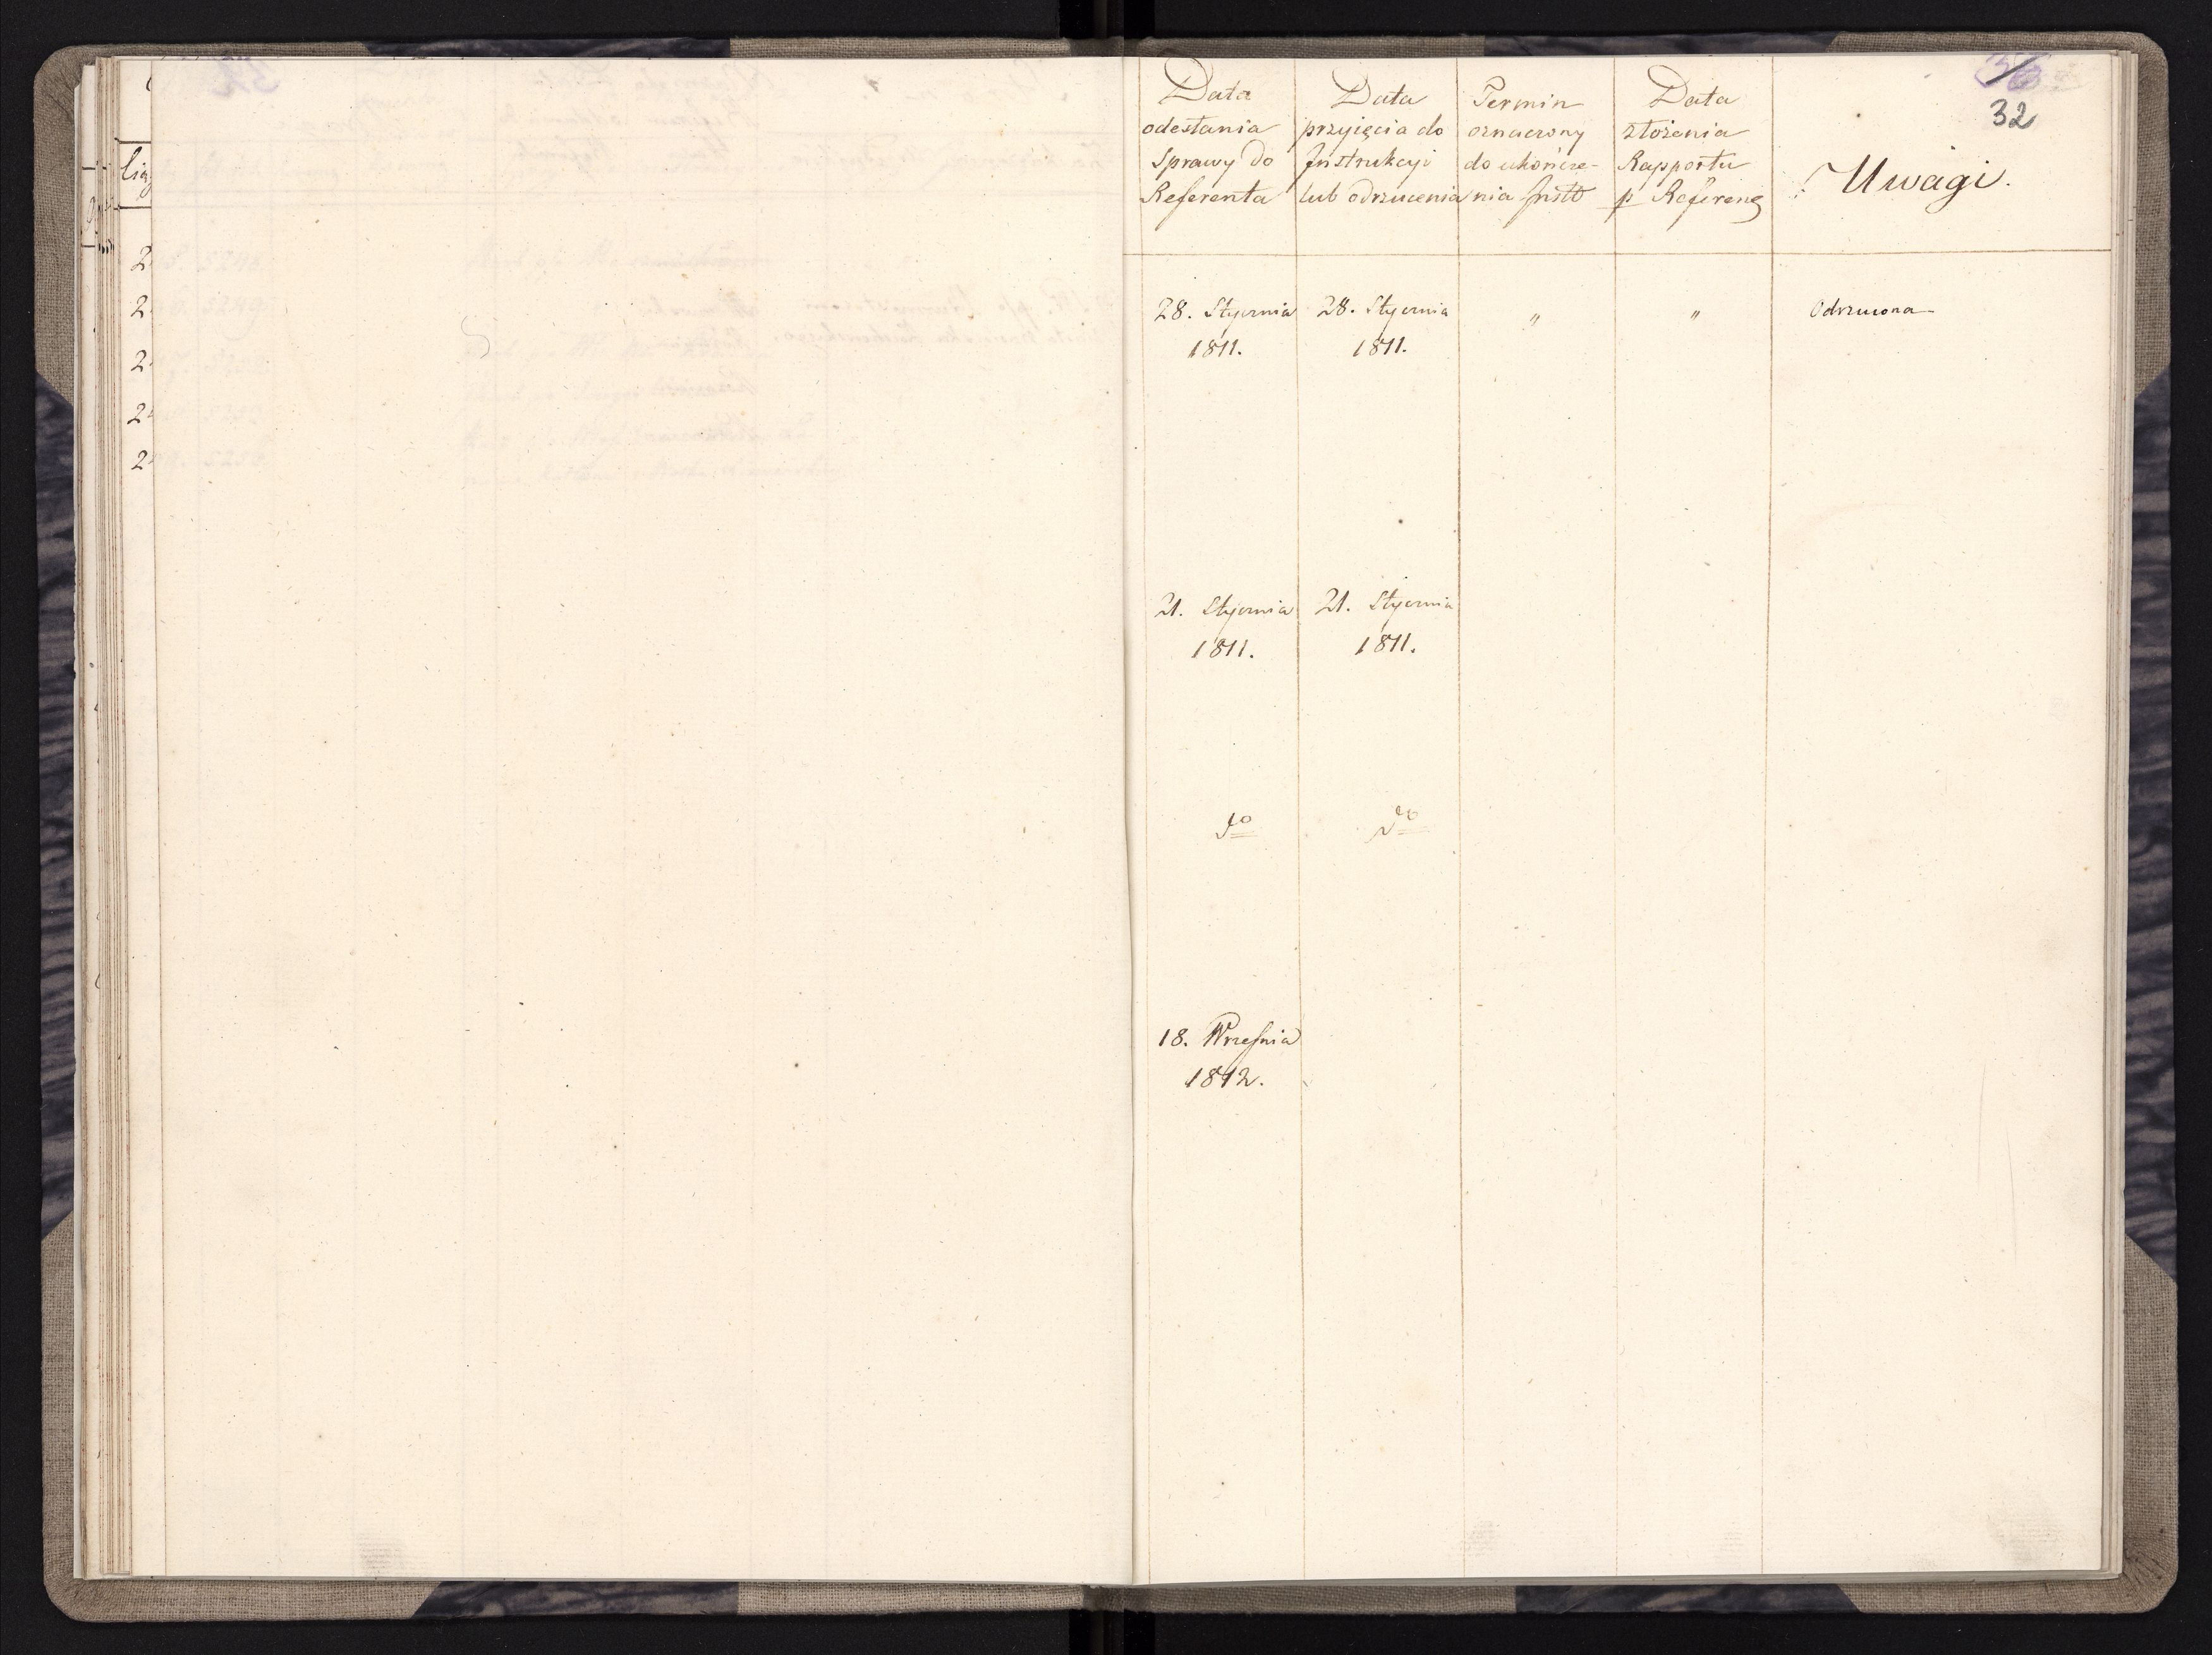 32
Data
odesłania
Sprawy do
Referenta
Data
przyięcia do
Instrukcyi
lub odrzucenia
Termin
oznaczony
do ukończe-
nia Instō
Data
złożenia
Rapportu
p Referenc̄
Uwagi.
28. Stycznia
1811.
28. Stycznia
1811.
"
"
Odrzucona
21. Stycznia
1811.
21. Stycznia
1811.
do
do
18. Września
1812.